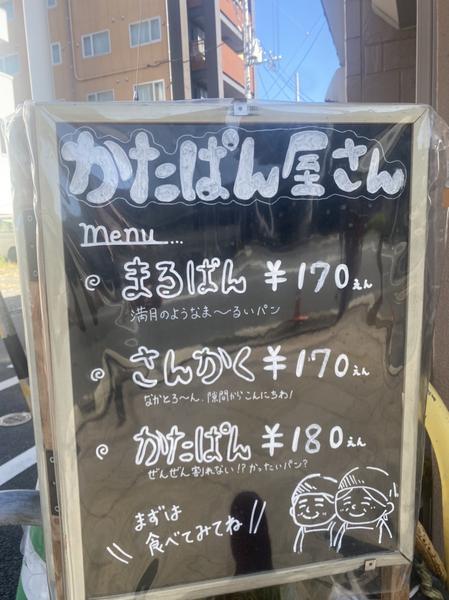 かたぱん屋さん
menu...
まるぱん ￥170えん
満月のようなま〜るいパン
さんかく ￥170えん
なかとろ〜ん、隙間からこんにちわ!
かたぱん ￥180えん
ぜんぜん割れない!?かったいパン?
まずは
食べてみてね